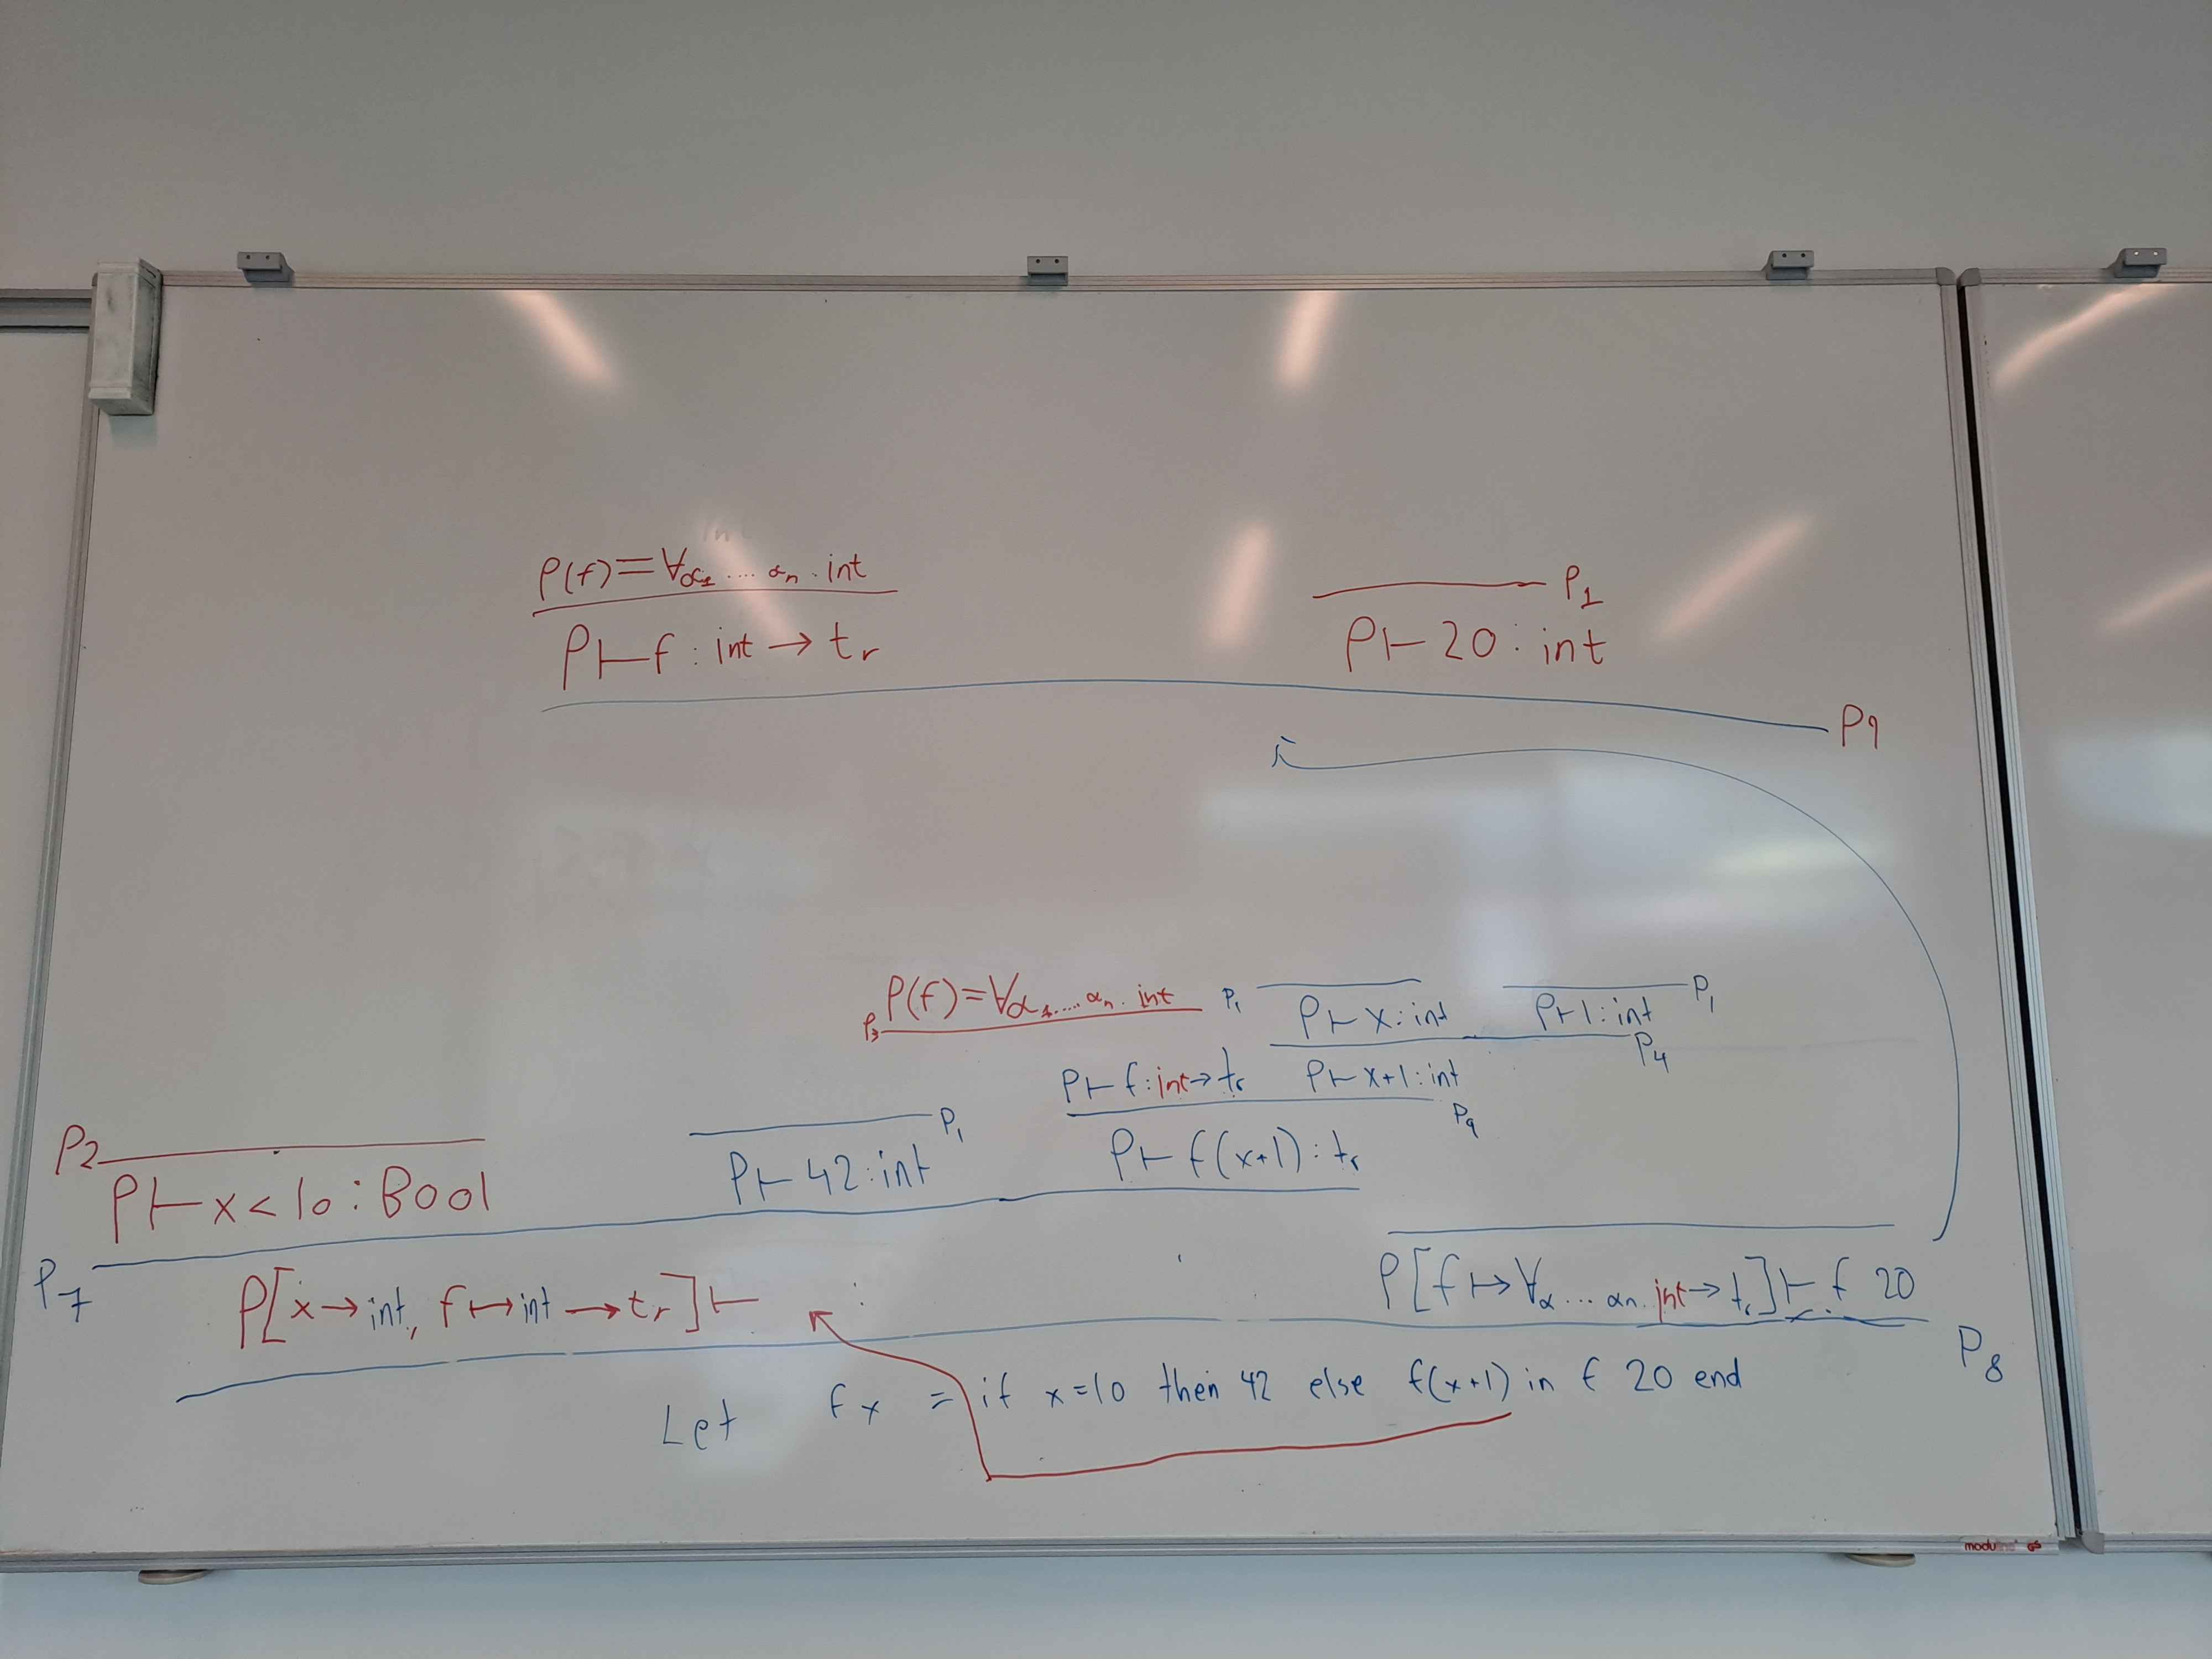 ρ(f)=∀α1 .... αn . int
P1
ρ⊢f : int → tr
ρ⊢20 : int
P9
P3 ρ(f)=∀α1.....αn. int
P1
ρ⊢x:int
ρ⊢1:int
P1
P4
ρ⊢f:int→tr
ρ⊢x+1:int
P9
P2
ρ⊢x<10:Bool
ρ⊢42:int
P1
ρ⊢f(x+1):tr
P7
ρ[x→int, f↦int→tr]⊢ :
ρ[f↦∀α....αn. int→tr]⊢ f 20
P8
Let f x = if x=10 then 42 else f(x+1) in f 20 end
moduline GS